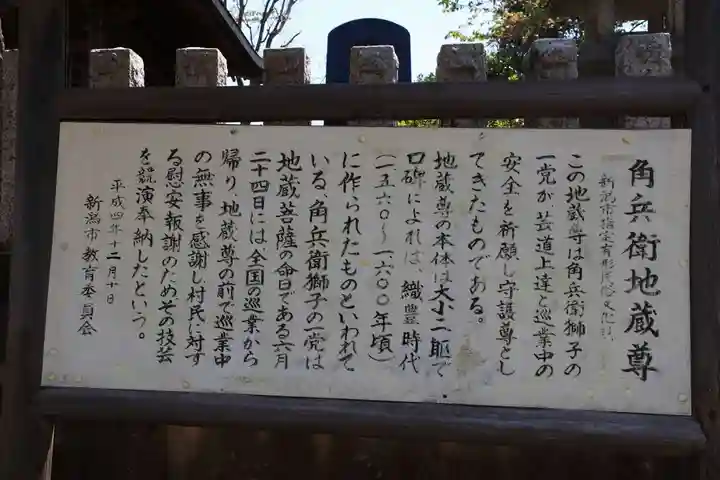 角兵衛地蔵尊
新潟市指定有形民俗文化財
この地蔵尊は角兵衛獅子の
一党が芸道上達と巡業中の
安全を祈願し守護尊とし
てきたものである。
地蔵尊の本体は大小二躯で
口碑によれば、織豊時代
(一五六〇〜一六〇〇年頃)
に作られたものといわれて
いる、角兵衛獅子の一党は
地蔵菩薩の命日である六月
二十四日には、全国の巡業から
帰り、地蔵尊の前で巡業中
の無事を感謝し村民に対す
る慰安報謝のためその技芸
を競演奉納したという。
平成四年十二月十日
新潟市教育委員会